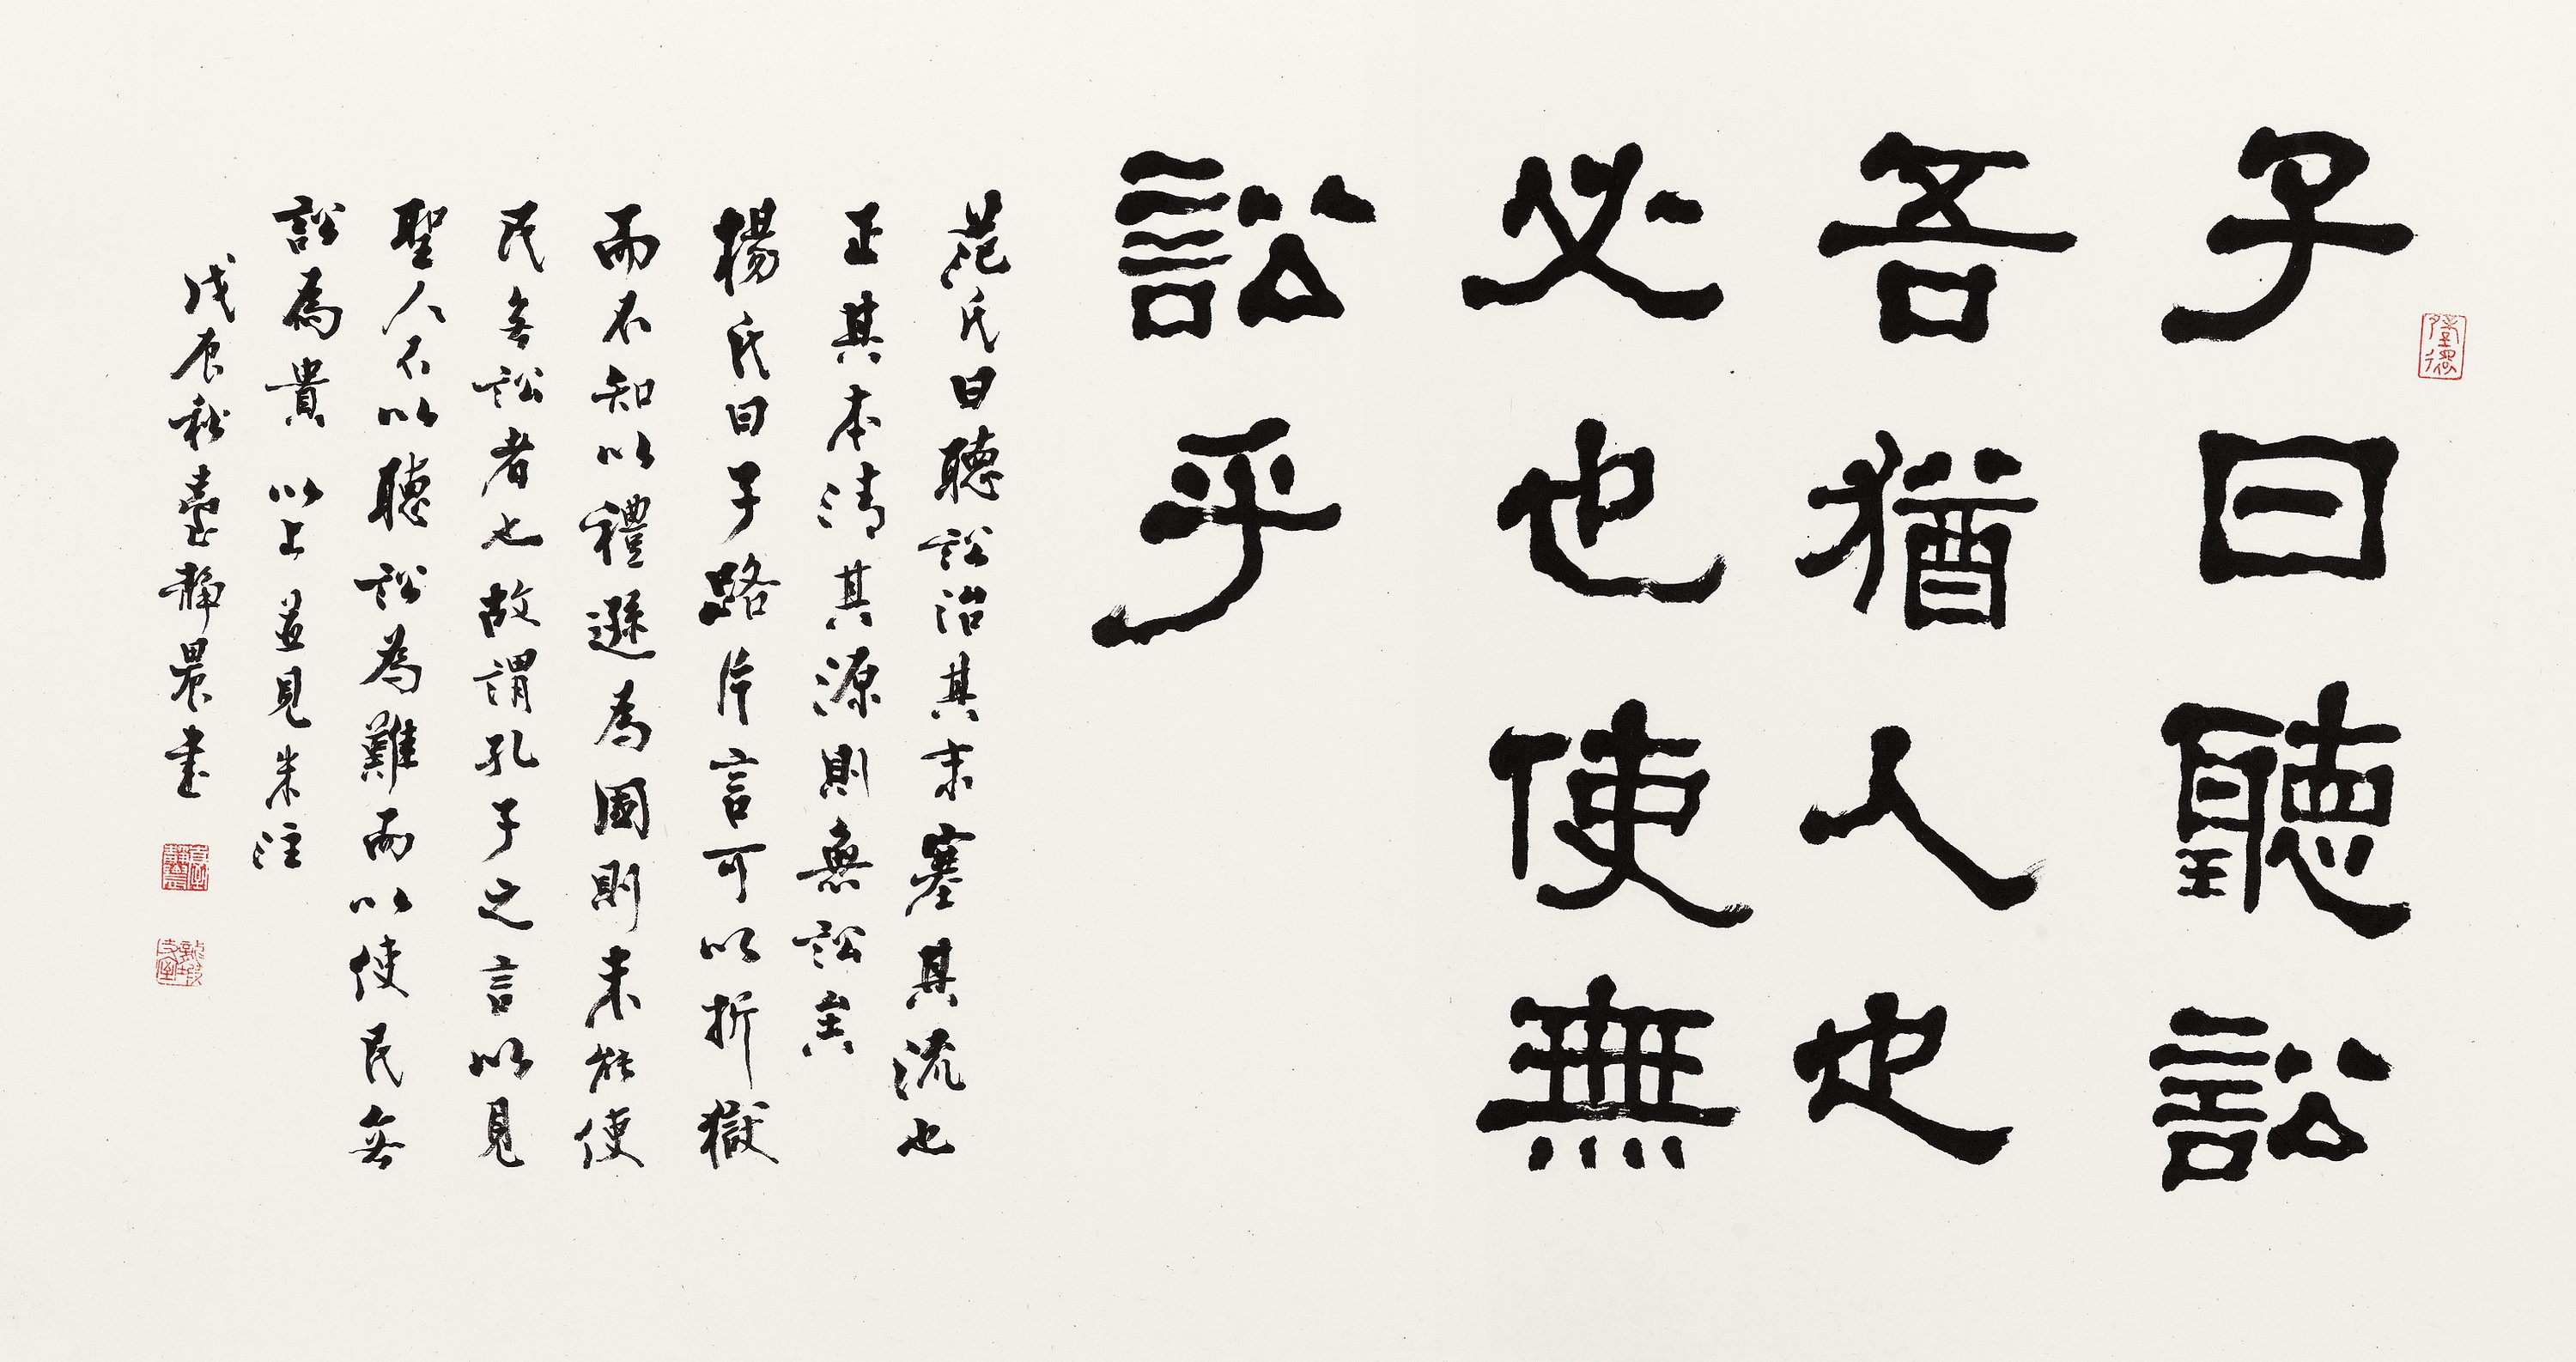 子曰聽訟
吾猶人也
必也使無
訟乎
范氏曰聽訟治其末塞其流也
正其本清其源則無訟矣
楊氏曰子路片言可以折獄
而不知以禮遜為國則未能使
民無訟者也故謂孔子之言以見
聖人不以聽訟為難而以使民無
訟為貴 以上並見朱注
戊辰秋臺靜農書
臺靜農